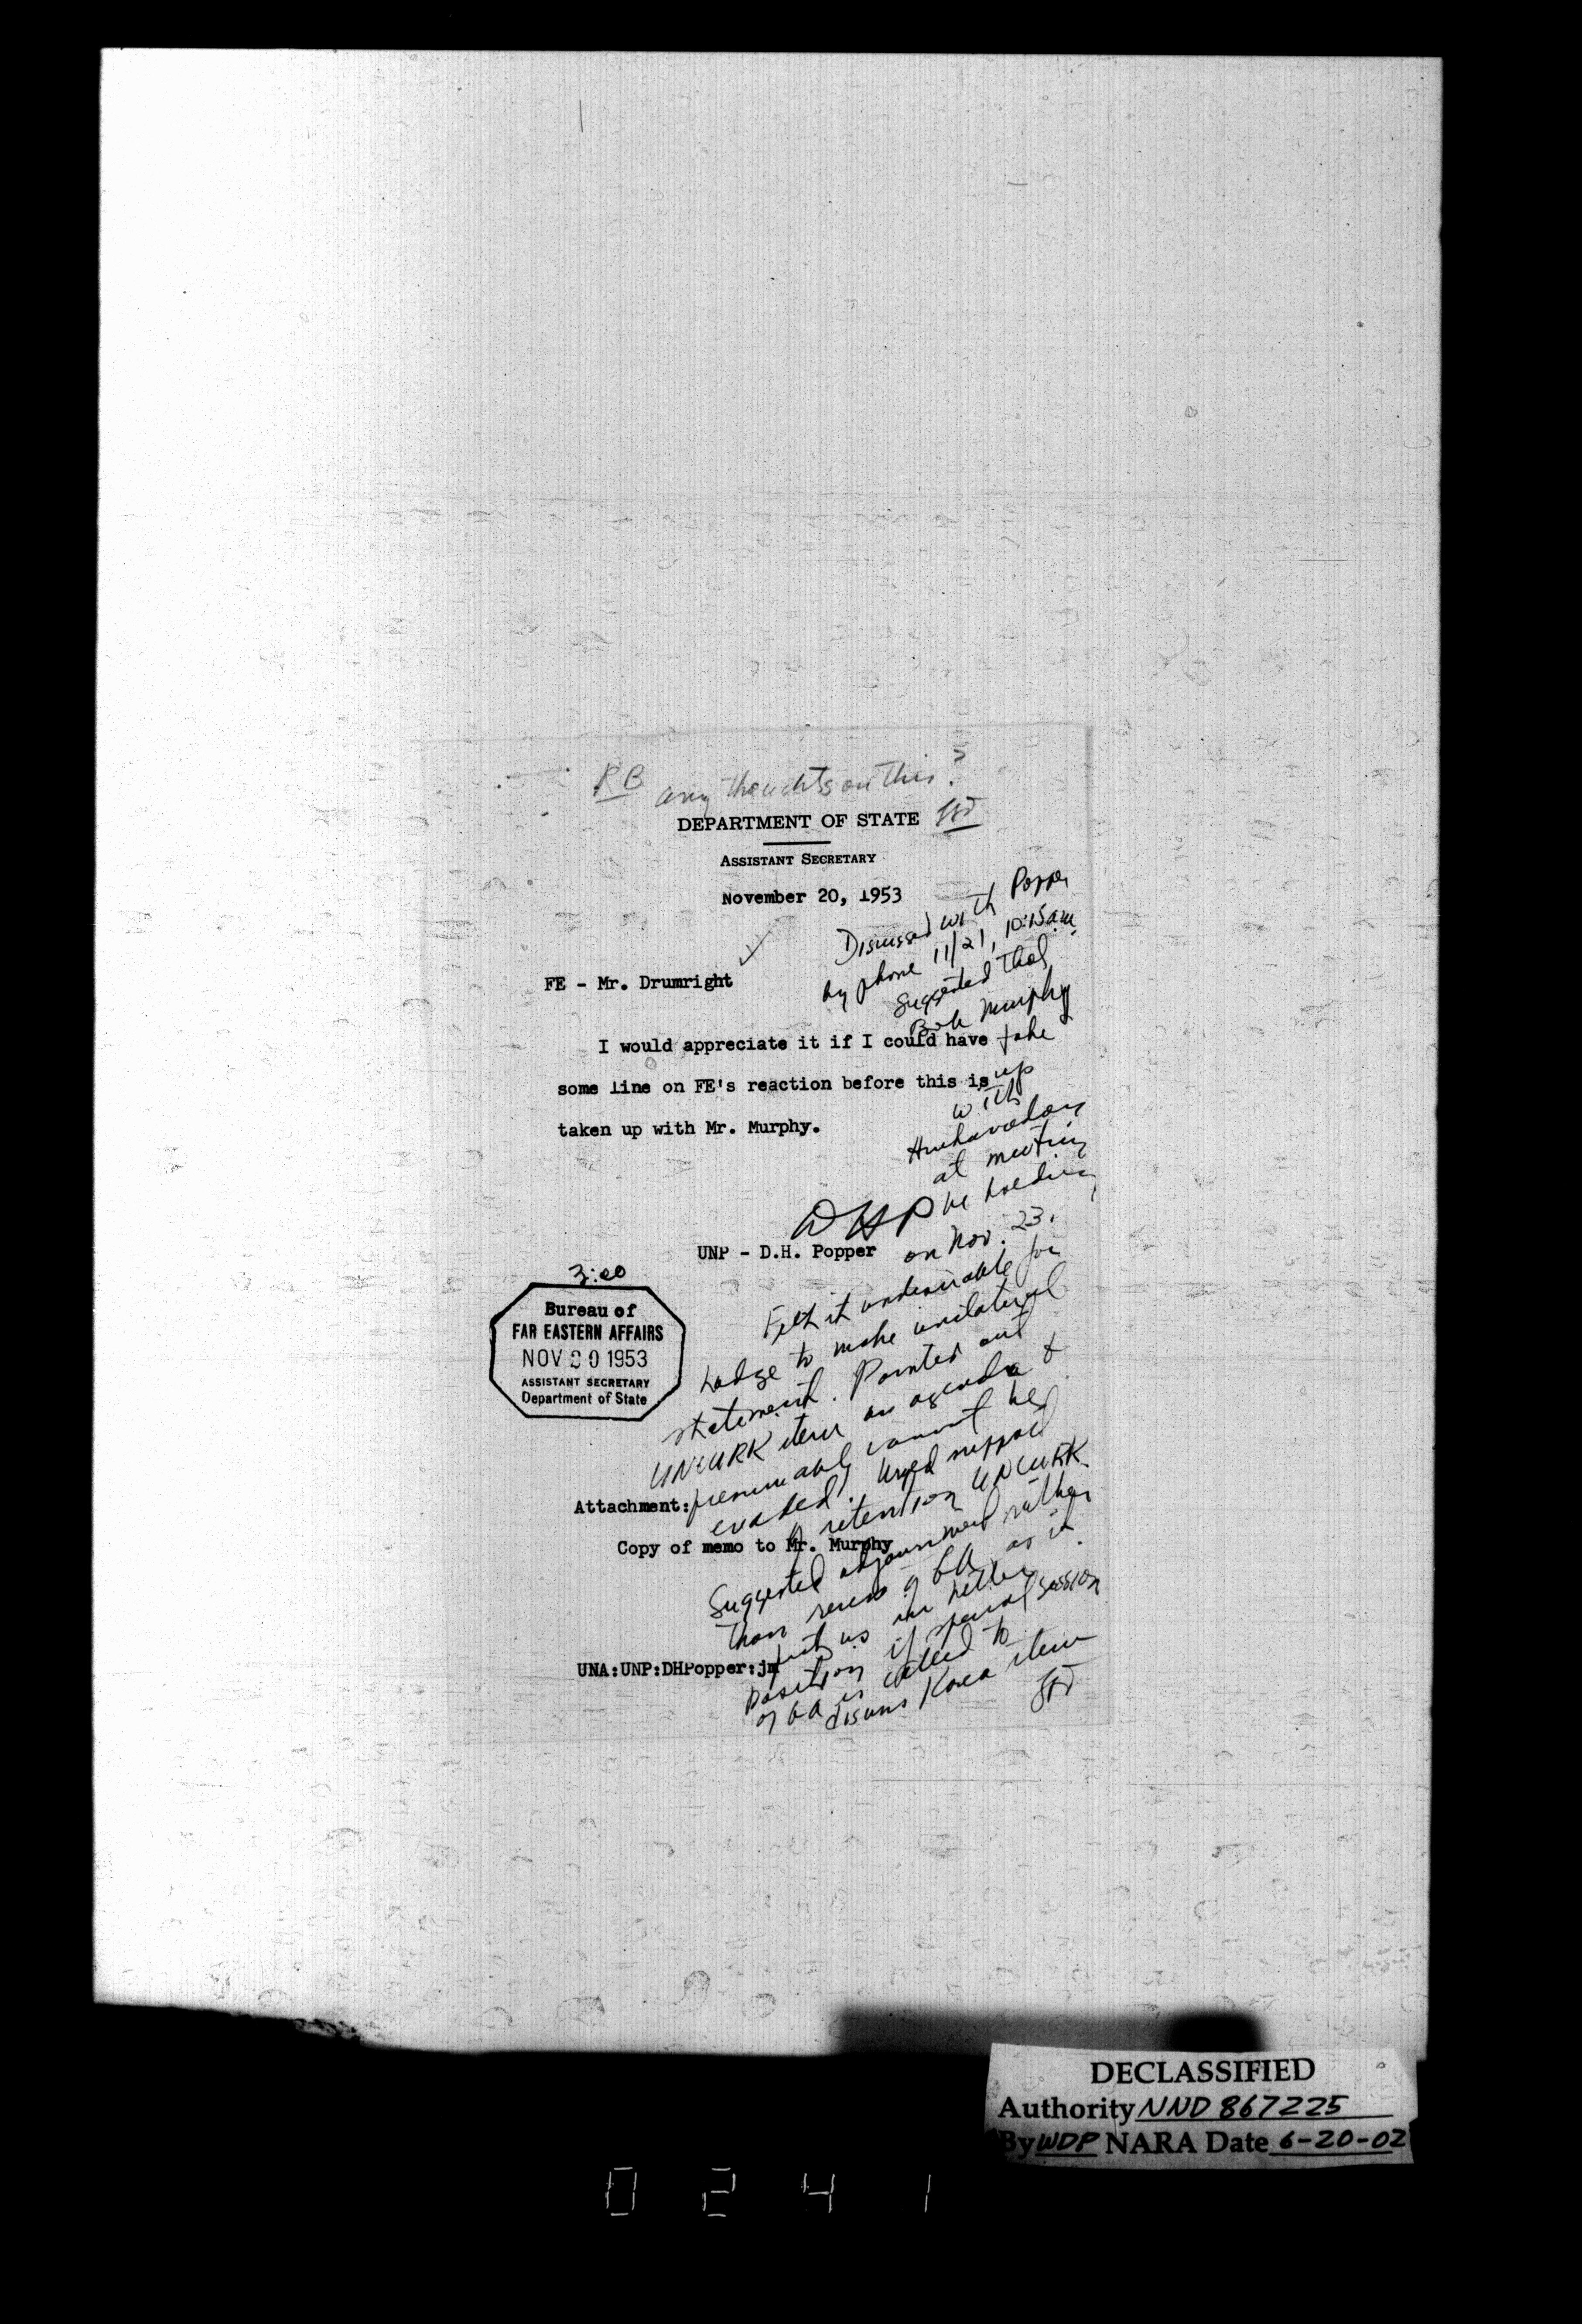 RB any thoughts on this?
DEPARTMENT OF STATE
ASSISTANT SECRETARY
November 20, 1953
Discussed with Popper
by phone 11/21, 10:15 a.m.
Suggested that
Bob Murphy
take
up
with
at meeting
he holding
on Nov. 23.
FE - Mr. Drumright
I would appreciate it if I could have
some line on FE's reaction before this is
taken up with Mr. Murphy.
DHP
UNP - D.H. Popper
3:00
Bureau of
FAR EASTERN AFFAIRS
NOV 20 1953
ASSISTANT SECRETARY
Department of State
Felt it undesirable for
Lodge to make unilateral
statement. Pointed out
UNCURK item on agenda &
presumably cannot be
evaded. Urged support
of retention UNCURK.
Suggested adjournment rather
than recess of GA as it
puts us in better
position if special session
of GA is called to
discuss Korea item
Attachment:
Copy of memo to Mr. Murphy
UNA:UNP:DHPopper:jm
DECLASSIFIED
Authority NND 867225
By WDP NARA Date 6-20-02
0 2 4 1